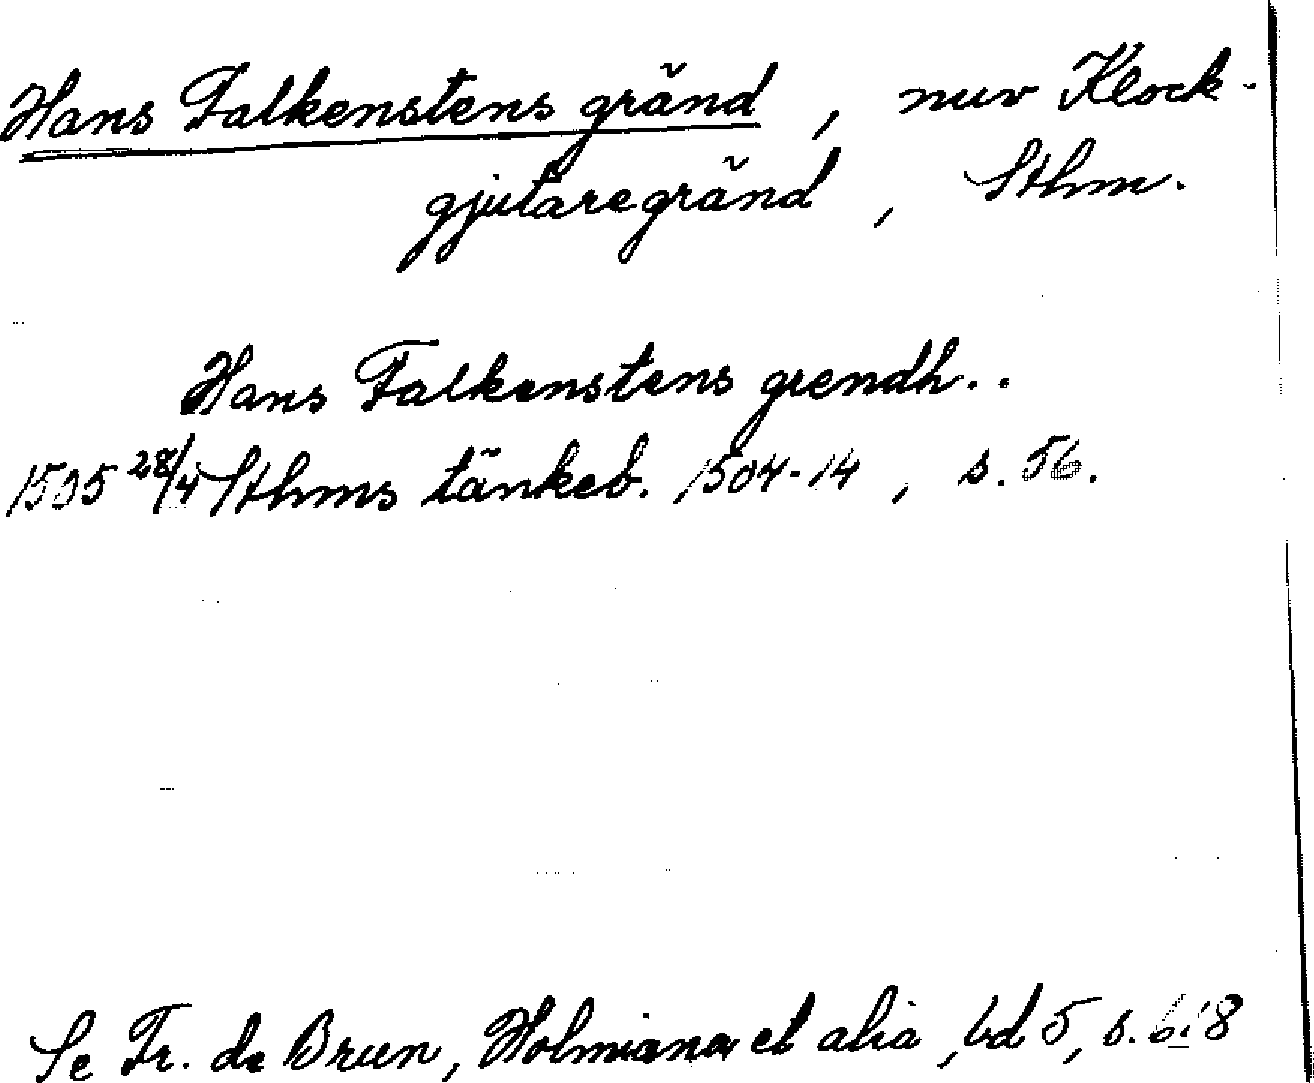 Hans Falkenstens gränd, nuv Klock-
gjutaregränd, Sthm.
Hans Falkenstens grendh..
1505 28/4 Sthms tänkeb. 1504-14, s. 56.
Se Fr. de Brun, Holmiana et alia, bd 5, s.